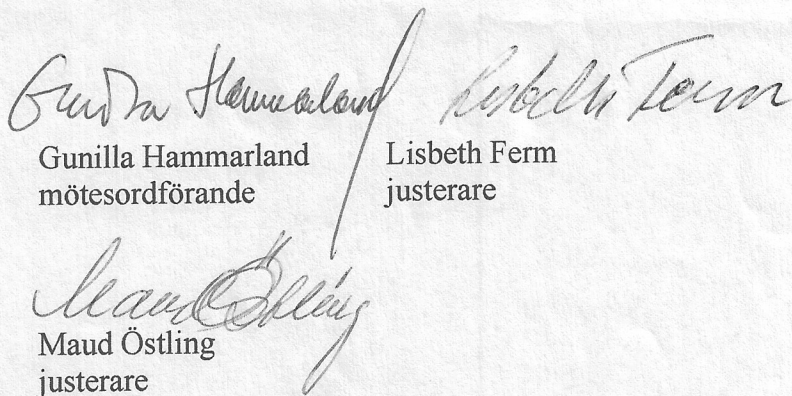 Gunilla Hammarland Lisbeth Ferm
Gunilla Hammarland Lisbeth Ferm
mötesordförande justerare
Maud Östling
Maud Östling
justerare